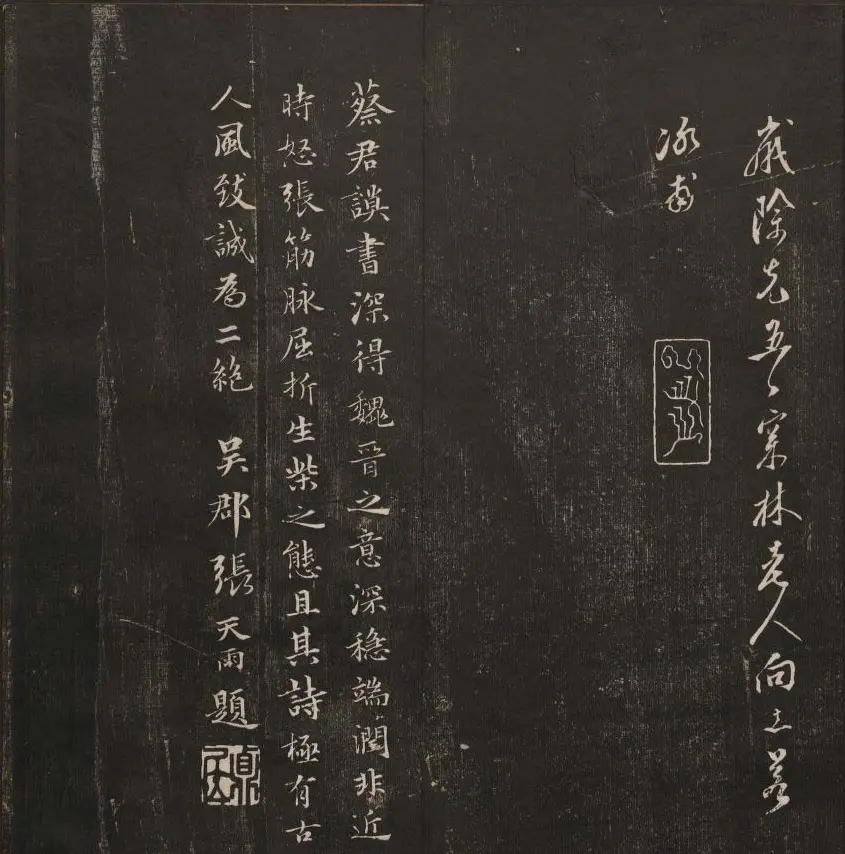 歲除先五林老人向若
冰甫
蔡君謨書深得魏晉之意深穩端潤非近
時怒張筋脉屈折生柴之態且其詩極有古
人風致誠為二絶 吳郡張天雨題